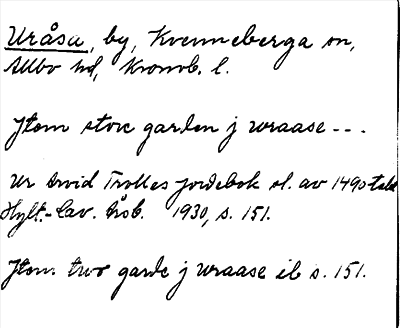 Uråsa, by, Kvenneberga sn,
Allbo hd, Kronob. l.
Jtem store garden j wraase ---
Ur Arvid Trolles jordebok sl. av 1490-talet
Hylt.-Cav. årsb. 1930, s. 151.
Jtem two garde j wraase ib s. 151.